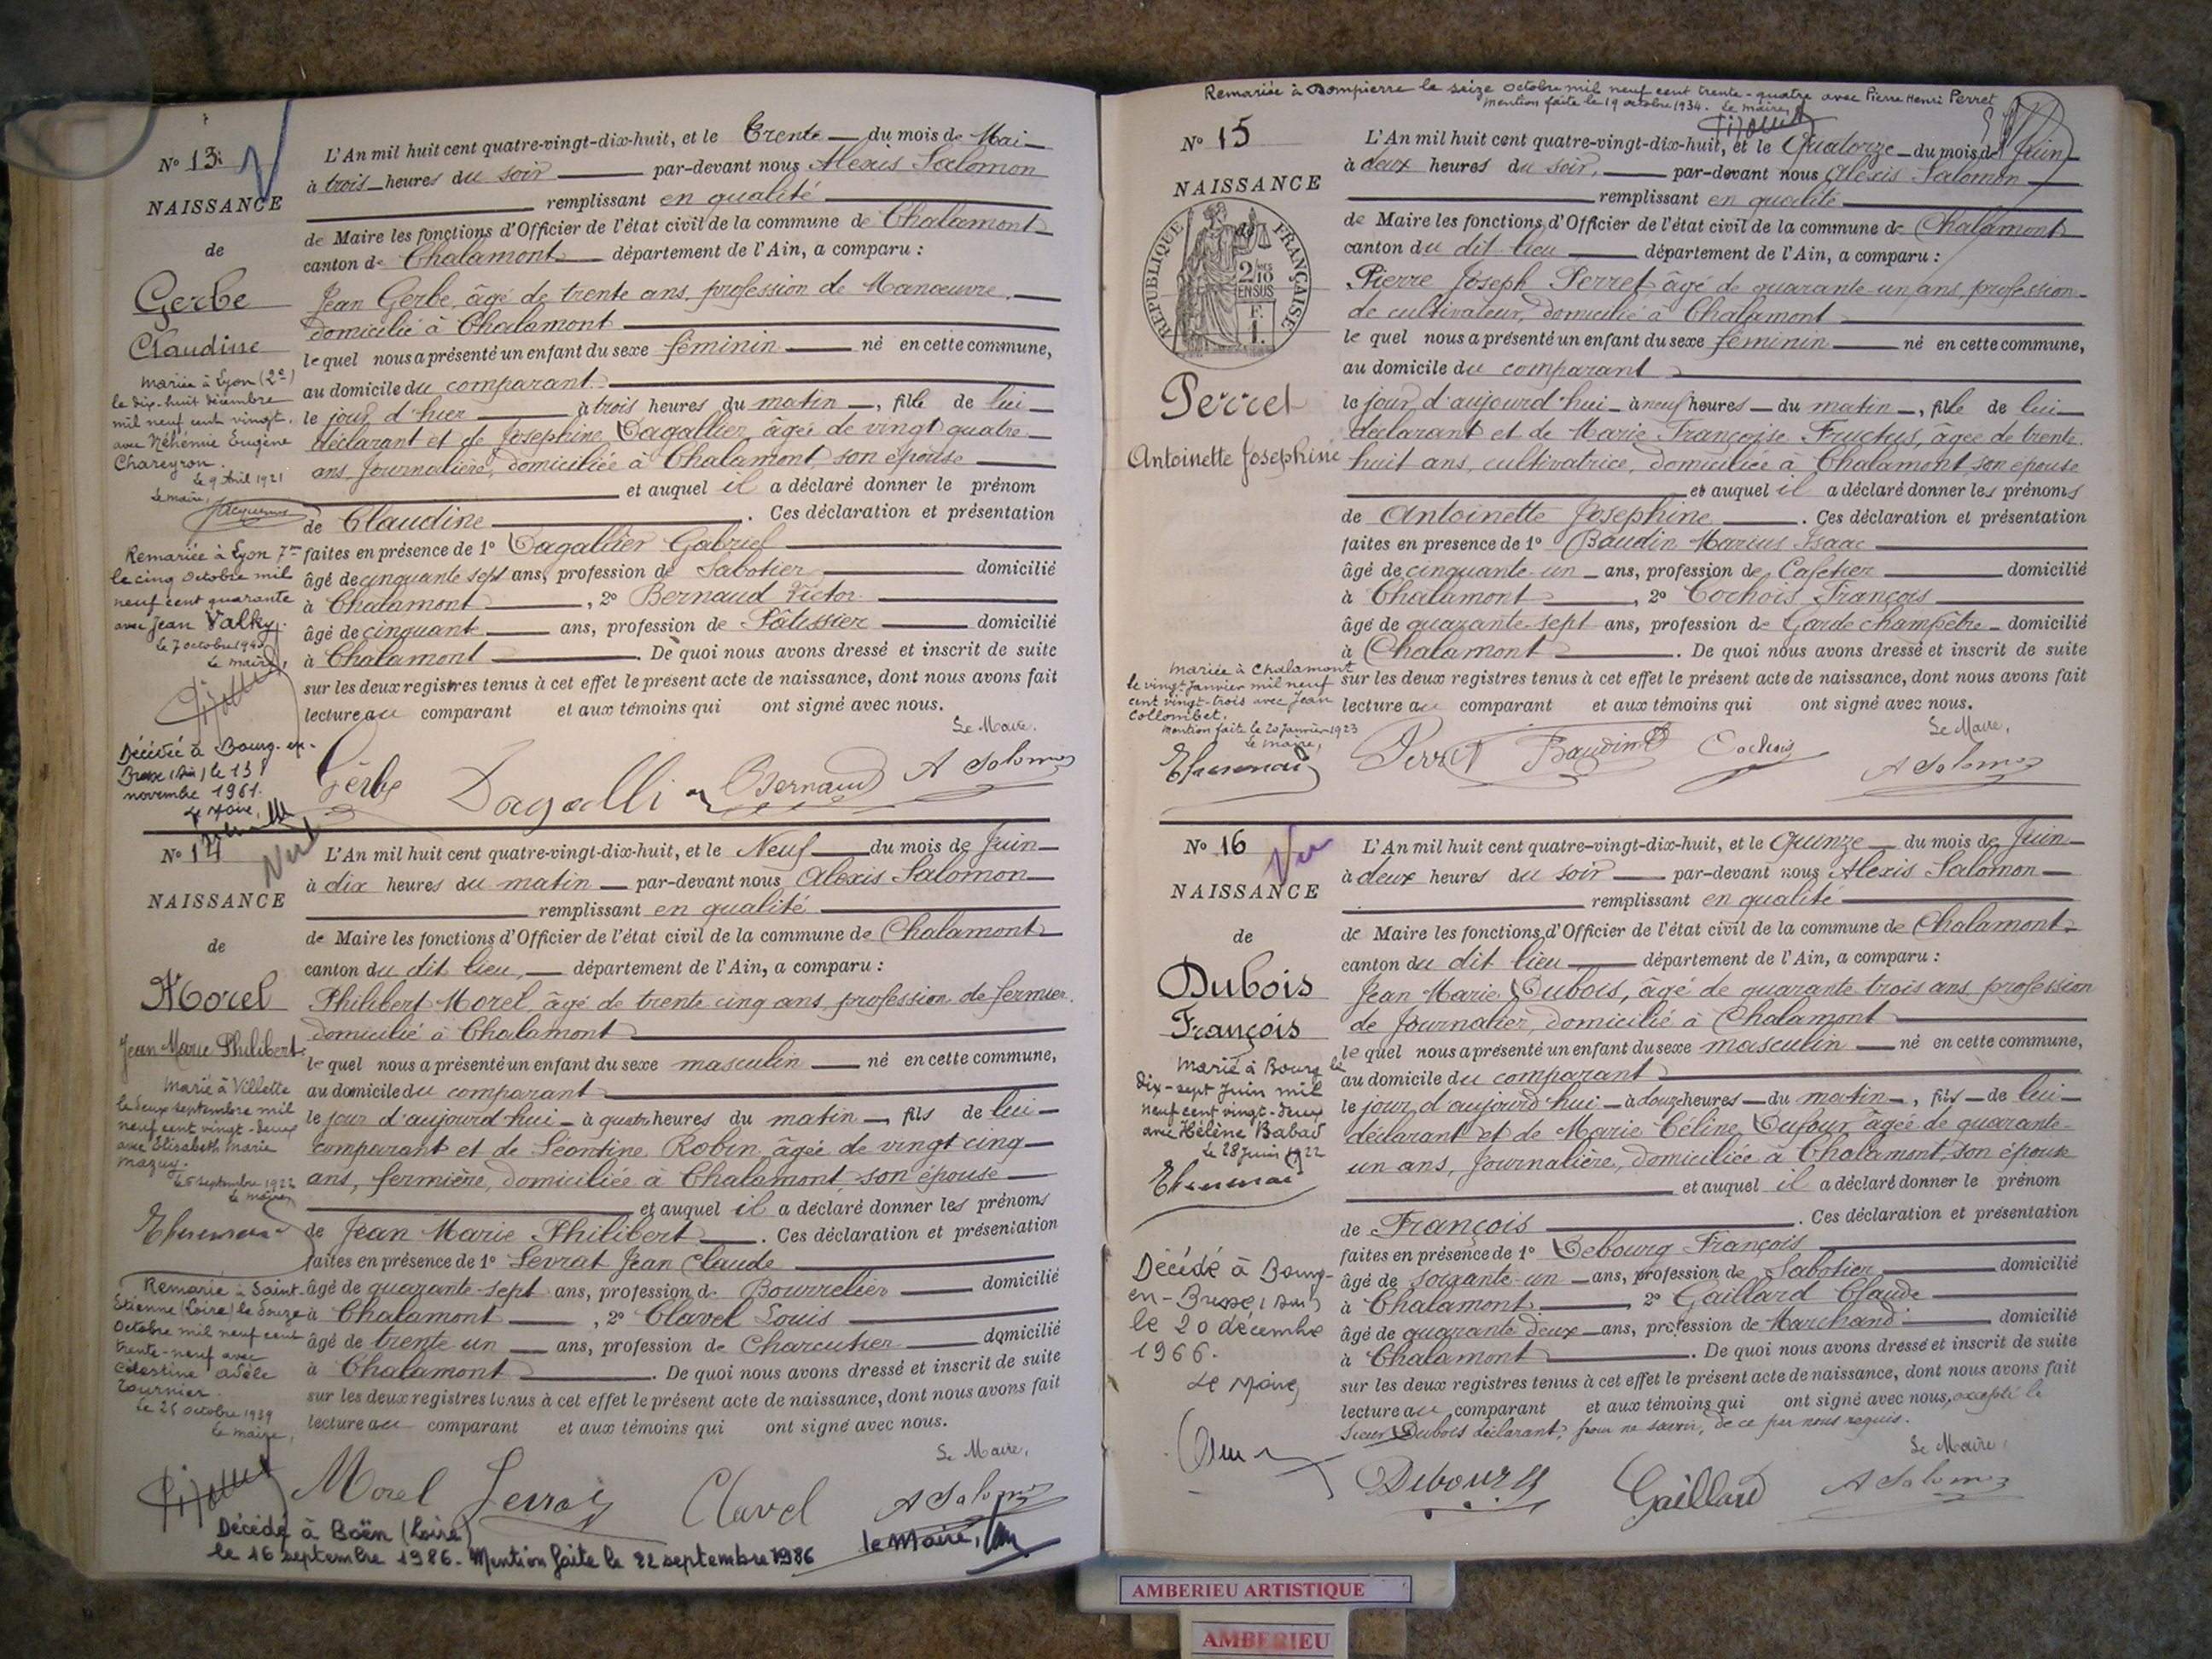 N° 13.
NAISSANCE
de
Gerbe
Claudine
Mariée à Lyon (2e)
le dix-huit décembre
mil neuf cent vingt.
avec Néhémie Eugène
Chareyron.
Le 9 Avril 1921
Le maire,
Remariée à Lyon 7me
le cinq Octobre mil
neuf cent quarante
avec Jean Valky.
Le 7 octobre 1940
Le maire,
Décédée à Bourg-en-
Bresse (Ain) le 13
novembre 1961.
Le Maire,
L'An mil huit cent quatre-vingt-dix-huit, et le Trente du mois de Mai
à trois heures du soir par-devant nous Alexis Salomon
remplissant en qualité
de Maire les fonctions d'Officier de l'état civil de la commune de Chalamont
canton de Chalamont département de l'Ain, a comparu :
Jean Gerbe, âgé de trente ans, profession de Manœuvre,
domicilié à Chalamont
lequel nous a présenté un enfant du sexe féminin né en cette commune,
au domicile du comparant
le jour d'hier à trois heures du matin, fille de lui
déclarant et de Josephine Dagallier âgée de vingt quatre
ans, Journalière, domiciliée à Chalamont, son épouse
et auquel il a déclaré donner le prénom
de Claudine. Ces déclaration et présentation
faites en présence de 1° Dagallier Gabriel
âgé de cinquante sept ans, profession de Sabotier domicilié
à Chalamont, 2° Bernaud Victor
âgé de cinquante ans, profession de Pâtissier domicilié
à Chalamont. De quoi nous avons dressé et inscrit de suite
sur les deux registres tenus à cet effet le présent acte de naissance, dont nous avons fait
lecture au comparant et aux témoins qui ont signé avec nous.
Le Maire,
Gerbe Dagallier Bernaud A Salomon
N° 14
Vu
NAISSANCE
de
Morel
Jean Marie Philibert
Marié à Villette
le deux septembre mil
neuf cent vingt-deux
avec Elisabeth Marie
Mazuy.
Le 5 septembre 1922
Le maire,
Remarié à Saint-
Etienne (Loire) le douze
Octobre mil neuf cent
trente-neuf avec
Célestine Adèle
Tournier.
Le 25 octobre 1939
Le maire,
L'An mil huit cent quatre-vingt-dix-huit, et le Neuf du mois de Juin
à dix heures du matin par-devant nous Alexis Salomon
remplissant en qualité
de Maire les fonctions d'Officier de l'état civil de la commune de Chalamont
canton du dit lieu, département de l'Ain, a comparu :
Philibert Morel, âgé de trente cinq ans, profession de fermier,
domicilié à Chalamont
lequel nous a présenté un enfant du sexe masculin né en cette commune,
au domicile du comparant
le jour d'aujourd'hui à quatre heures du matin, fils de lui
comparant et de Léontine Robin, âgée de vingt cinq
ans, fermière, domiciliée à Chalamont son épouse
et auquel il a déclaré donner les prénoms
de Jean Marie Philibert. Ces déclaration et présentation
faites en présence de 1° Levrat Jean Claude
âgé de quarante-sept ans, profession de Bourrelier domicilié
à Chalamont, 2° Clavel Louis
âgé de trente un ans, profession de Charcutier domicilié
à Chalamont. De quoi nous avons dressé et inscrit de suite
sur les deux registres tenus à cet effet le présent acte de naissance, dont nous avons fait
lecture au comparant et aux témoins qui ont signé avec nous.
Le Maire,
Morel Levrat Clavel A Salomon
Décédé à Boën (Loire)
le 16 septembre 1986. Mention faite le 22 septembre 1986 le Maire,
Remariée à Dompierre le seize Octobre mil neuf cent trente-quatre avec Pierre Henri Perret
Mention faite le 19 octobre 1934. Le maire,
N° 15
NAISSANCE
de
RÉPUBLIQUE FRANÇAISE
2/10
EN SUS
F.
1.
Perret
Antoinette Josephine
Mariée à Chalamont
le vingt Janvier mil neuf
cent vingt-trois avec Jean
Collombet.
Mention faite le 20 janvier 1923
Le maire,
L'An mil huit cent quatre-vingt-dix-huit, et le Quatorze du mois de Juin
à deux heures du soir, par-devant nous Alexis Salomon
remplissant en qualité
de Maire les fonctions d'Officier de l'état civil de la commune de Chalamont
canton du dit lieu département de l'Ain, a comparu :
Pierre Joseph Perret, âgé de quarante-un ans, profession
de cultivateur, domicilié à Chalamont
lequel nous a présenté un enfant du sexe féminin né en cette commune,
au domicile du comparant
le jour d'aujourd'hui à neuf heures du matin, fille de lui
déclarant et de Marie Françoise Fructus, âgée de trente
huit ans, cultivatrice, domiciliée à Chalamont, son épouse
et auquel il a déclaré donner les prénoms
de Antoinette Josephine. Ces déclaration et présentation
faites en présence de 1° Baudin Marius Isaac
âgé de cinquante-un ans, profession de Cafetier domicilié
à Chalamont, 2° Cochois François
âgé de quarante-sept ans, profession de Garde champêtre domicilié
à Chalamont. De quoi nous avons dressé et inscrit de suite
sur les deux registres tenus à cet effet le présent acte de naissance, dont nous avons fait
lecture au comparant et aux témoins qui ont signé avec nous.
Le Maire,
Perret Baudin Cochois A Salomon
N° 16
Vu
NAISSANCE
de
Dubois
François
Marié à Bourg le
dix-sept Juin mil
neuf cent vingt-deux
avec Hélène Babad
Le 28 Juin 1922
Décédé à Bourg-
en-Bresse (Ain)
le 20 décembre
1966.
Le Maire,
L'An mil huit cent quatre-vingt-dix-huit, et le Quinze du mois de Juin
à deux heures du soir par-devant nous Alexis Salomon
remplissant en qualité
de Maire les fonctions d'Officier de l'état civil de la commune de Chalamont
canton du dit lieu département de l'Ain, a comparu :
Jean Marie Dubois, âgé de quarante trois ans, profession
de Journalier, domicilié à Chalamont
lequel nous a présenté un enfant du sexe masculin né en cette commune,
au domicile du comparant
le jour d'aujourd'hui à douze heures du matin, fils de lui
déclarant et de Marie Céline Dufour âgée de quarante
un ans, Journalière, domiciliée à Chalamont, son épouse
et auquel il a déclaré donner le prénom
de François. Ces déclaration et présentation
faites en présence de 1° Debourg François
âgé de soixante-un ans, profession de Sabotier domicilié
à Chalamont, 2° Gaillard Claude
âgé de quarante deux ans, profession de Marchand domicilié
à Chalamont. De quoi nous avons dressé et inscrit de suite
sur les deux registres tenus à cet effet le présent acte de naissance, dont nous avons fait
lecture au comparant et aux témoins qui ont signé avec nous, excepté le
Sieur Dubois déclarant, pour ne savoir, de ce par nous requis.
Le Maire,
Debourg Gaillard A Salomon
AMBERIEU ARTISTIQUE
AMBERIEU